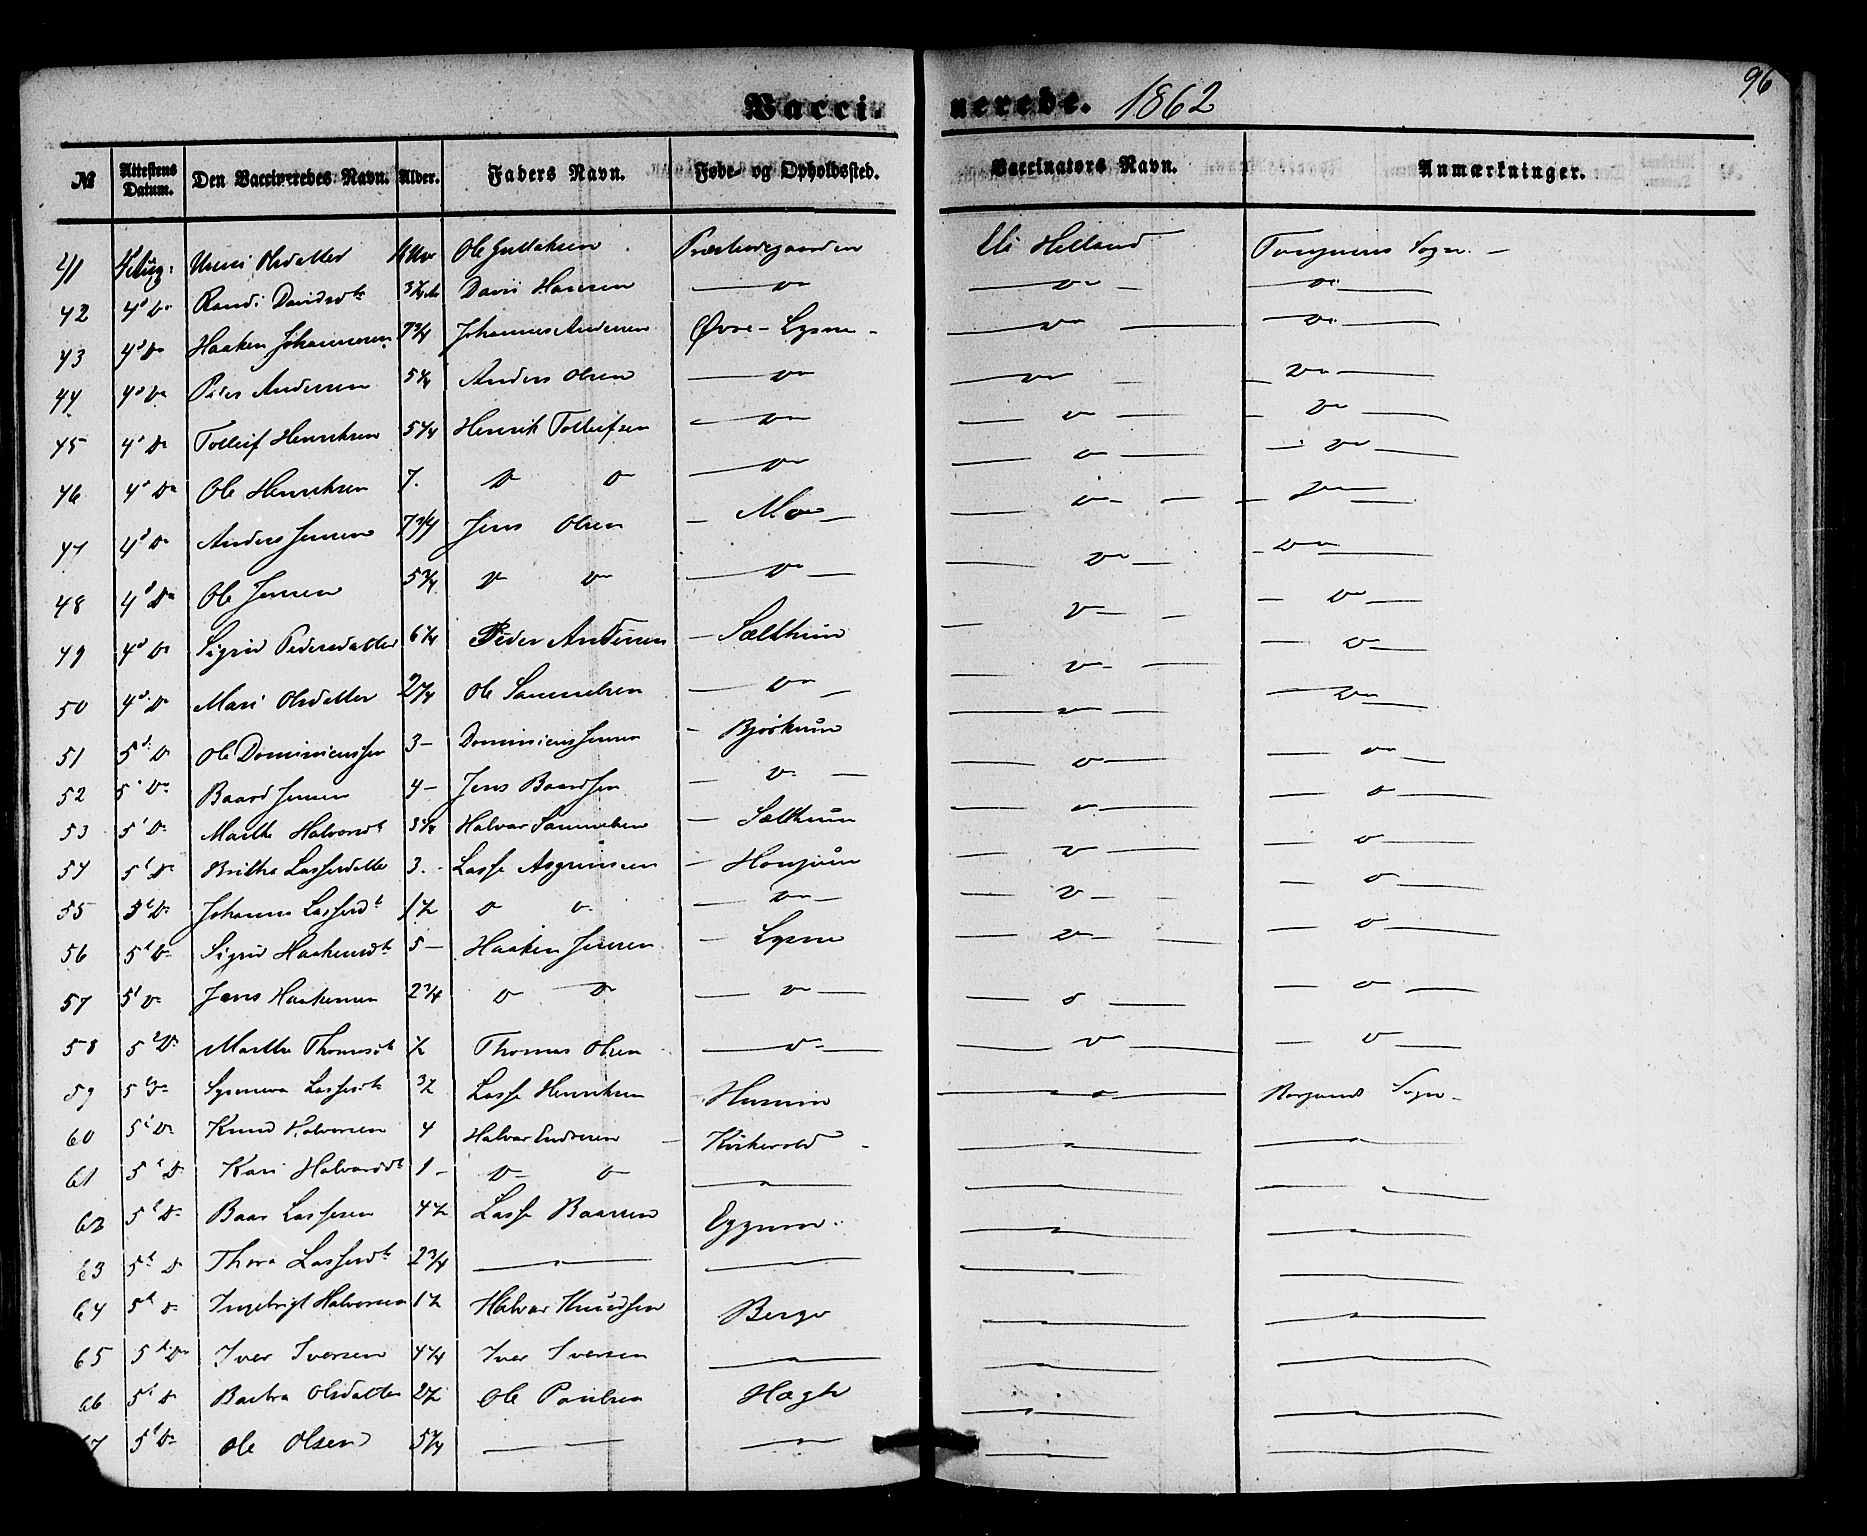 96
Vaccinerede. 1862
№ Attestens Datum. Den Vaccineredes Navn. Alder. Faders Navn. Føde- og Opholdssted. Vaccinators Navn. Anmærkninger.
41 Olsdatter Ole Helland Sogn. —
42 4d Do Randi Davidsdt Hansen — Do — — Do — — Do —
43 4d Do Haaken Johannesen 7 3/4 Johannes Andersen Øvre-Lysne — Do — — Do —
44 4d Do Peder Andersen Anders Olsen — Do — — Do — — Do —
45 4d Do Tolleif Henriksen 5 1/4 Henrik Tolleifsen — Do — — D — — Do —
46 4d Do Ole Henriksen 7. D D — Do — — D — — Do —
47 4d Do Anders Jensen 7 3/4 Jens Olsen — Moe — — D — — Do —
48 4d Do Ole Jensen 5 3/4 D Do — D — — Do — — Do —
49 4d Do Sigrid Pedersdatter 6 1/4 Peder Andersen — Sælthun — D — — D —
50 4d Do Mari Olsdatter Ole Samuelsen — Do — — D — — D —
51 5t D Ole Dominicussen 3 — Jensen — Bjørkum — D — — Do —
52 5t Do Baard Jensen 4 — Jens Baardsen — D — — D — — D —
53 5t Do Marthe Halvorsdt Halvor Samuelsen — Sælthun — D — — D —
54 5t Do Britha Lassesdatter 3. — Lasse Asgrimsen — — D — — D —
55 5t Do Johanne Lassesdt 1 1/2 D D — Do — — D — — D —
56 5t Do Sigrid Haakensdt 5 — Haaken Jensen — Lysne — D — — D —
57 5t Do Jens Haakensen 2 3/4 D D — D — — D — — D —
58 5t Do Marthe Thomasdt 1/2 Thomas Olsen — D — — D — — D —
59 5t Do Synneva Lassesdt 3 1/2 Lasse Henriksen Husum — D — Borgunds Sogn —
60 5t Do Knud Halvorsen 4 Halvor Endresen — Kirkevold — — —
61 5t D Kari Halvorsdt 1 — D D — — —
62 5t D Baar Lassesen 4 1/2 Lasse Baarsen Eggum — —
63 5t D Thora Lassesdt 2 3/4 — — — —
64 5t D Ingebrigt Halvorsen 1 1/2 Halvor Knudsen Berge — —
65 5t Do Iver Iversen 4 1/4 Iver Iversen — — —
66 5t D Olsdatter 2 1/2 Ole Paulsen Hægh — —
67 5t Do Ole Olsen — — — — —